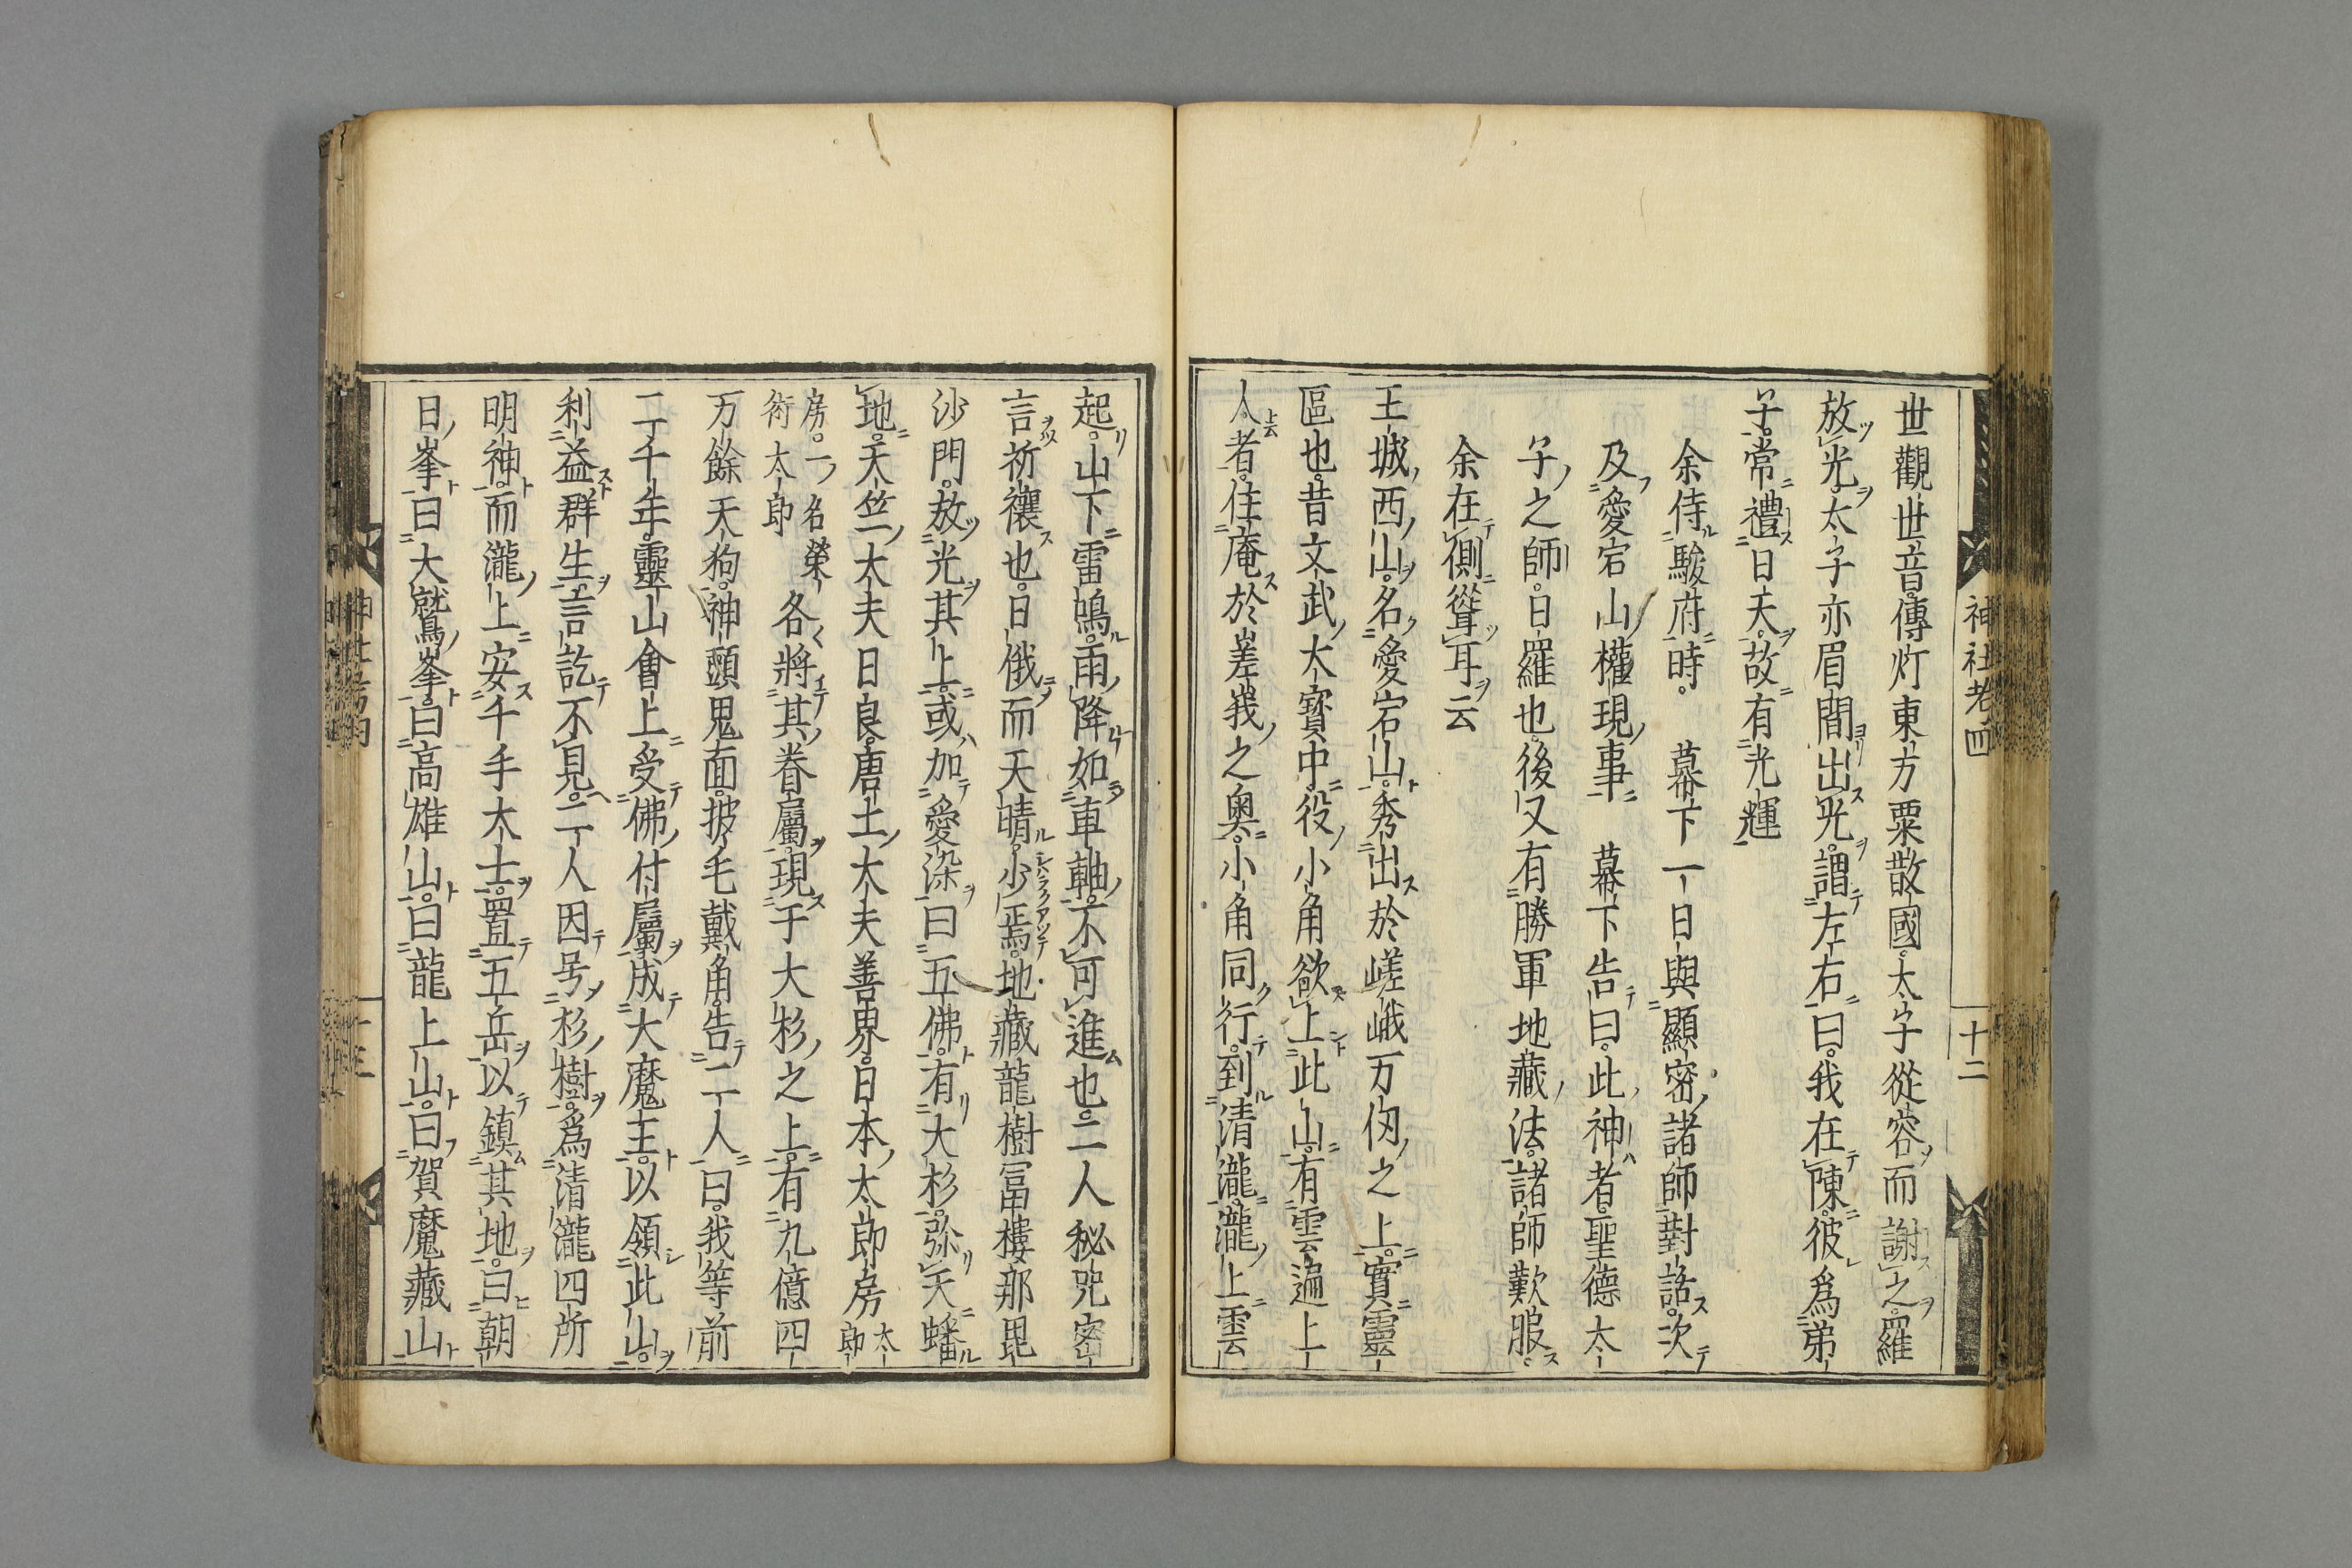 神社考四
十二
世觀世音傳灯東方粟散國太子從容而謝之羅
放光太子亦眉間出光謂左右曰我在陳彼爲弟
子常禮日天故有光輝
余侍駿府時 幕下一日與顯密諸師對話次
及愛宕山權現事 幕下告曰此神者聖德太
子之師日羅也後又有勝軍地藏法諸師歎服
余在側聳耳云
王城西山名愛宕山山秀出於嵯峨万仭之上實靈
區也昔文武大寳中役小角欲上此山有雲遍上
人者住庵於嵳峩之奥小角同行到清瀧瀧上雲
起山下雷鳴雨降如車軸不可進也二人秘咒密
言祈禳也日俄而天晴少焉地藏龍樹冨樓那毘
沙門放光其上或加愛染曰五佛有大杉弥天蟠
地天竺大夫日良唐土大夫善界日本太郎房太郎
房一名榮術太郎各〱將其眷屬現于大杉之上有九億四
万餘天狗神頭鬼面披毛戴角告二人曰我等前
二千年靈山會上受佛付屬成大魔王以領此山
利益群生言訖不見二人因号杉樹爲清瀧四所
明神而瀧上安千手大士置五岳以鎮其地曰朝
日峯曰大鷲峯曰高雄山曰龍上山曰賀魔藏山